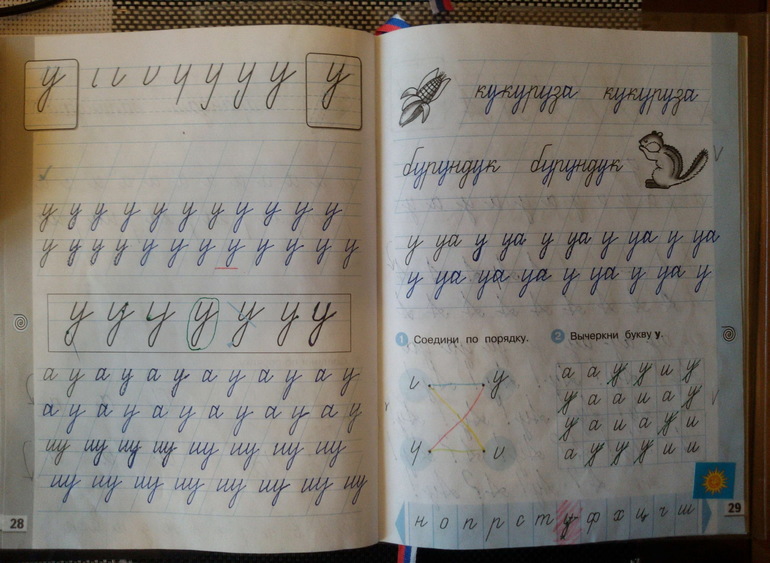 у у у у у у у у у у у
у у у у у у у у у у у у
у у у у у у у
а у а у а у а у а у а у
а у а у а у а у а у а у
иу иу иу иу иу иу иу иу
иу иу иу иу иу иу иу иу
28
кукуруза кукуруза
бурундук бурундук
у уа у уа у уа у уа у уа
у уа уа уа у уа у уа у
1 Соедини по порядку.
2 Вычеркни букву у.
а а у у и у
у а а и а у
у а и а у и
а у у у и и
н о п р с т у ф х ц ч ш
29